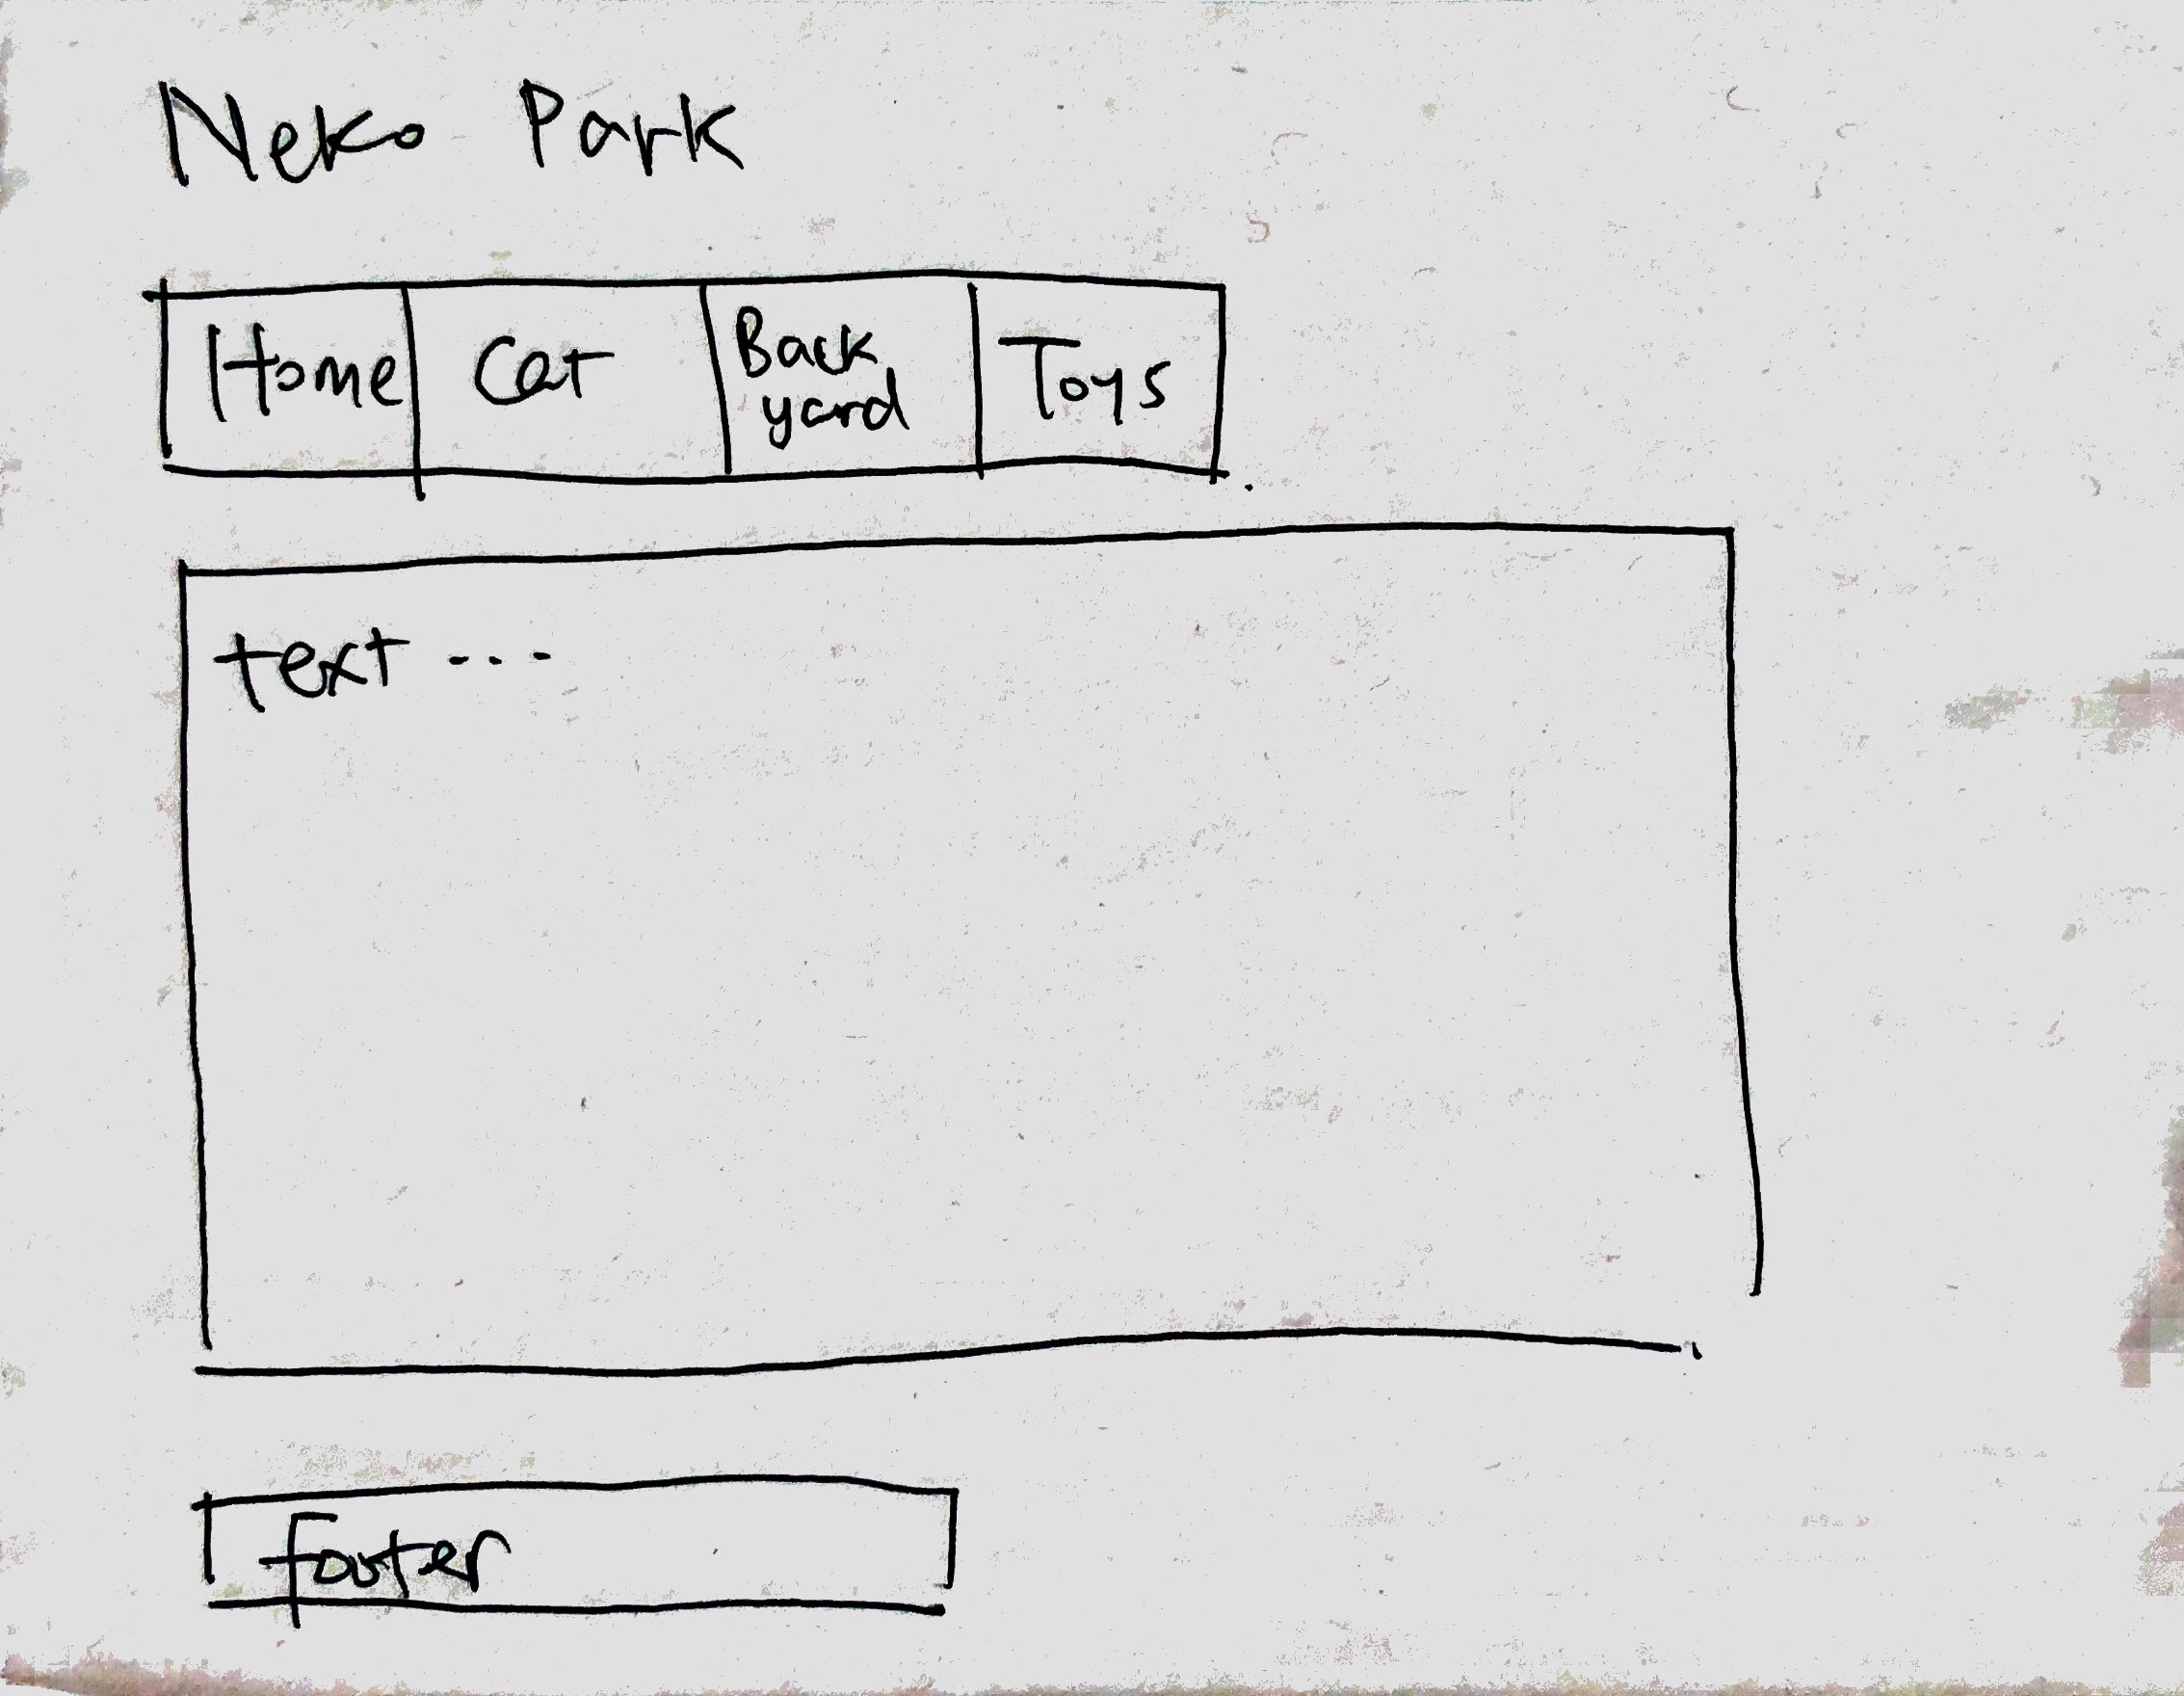 Neko Park
Home Cat Back yard Toys
text ...
footer